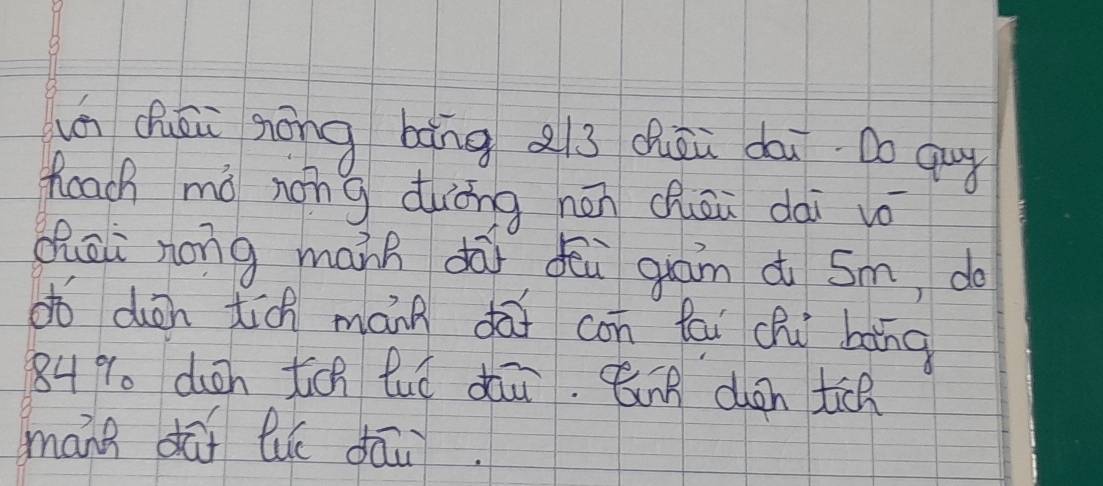 với chiều rộng bằng 2/3 chiều dài. Do quy
hoạch mở rộng đường nên chiều dài và
chiều rộng mảnh đất đều giảm đi 5m, do
đó diện tích mảnh đất còn lại chỉ bằng
84% diện tích lúc đầu. Tính diện tích
mảnh đất lúc đầu.